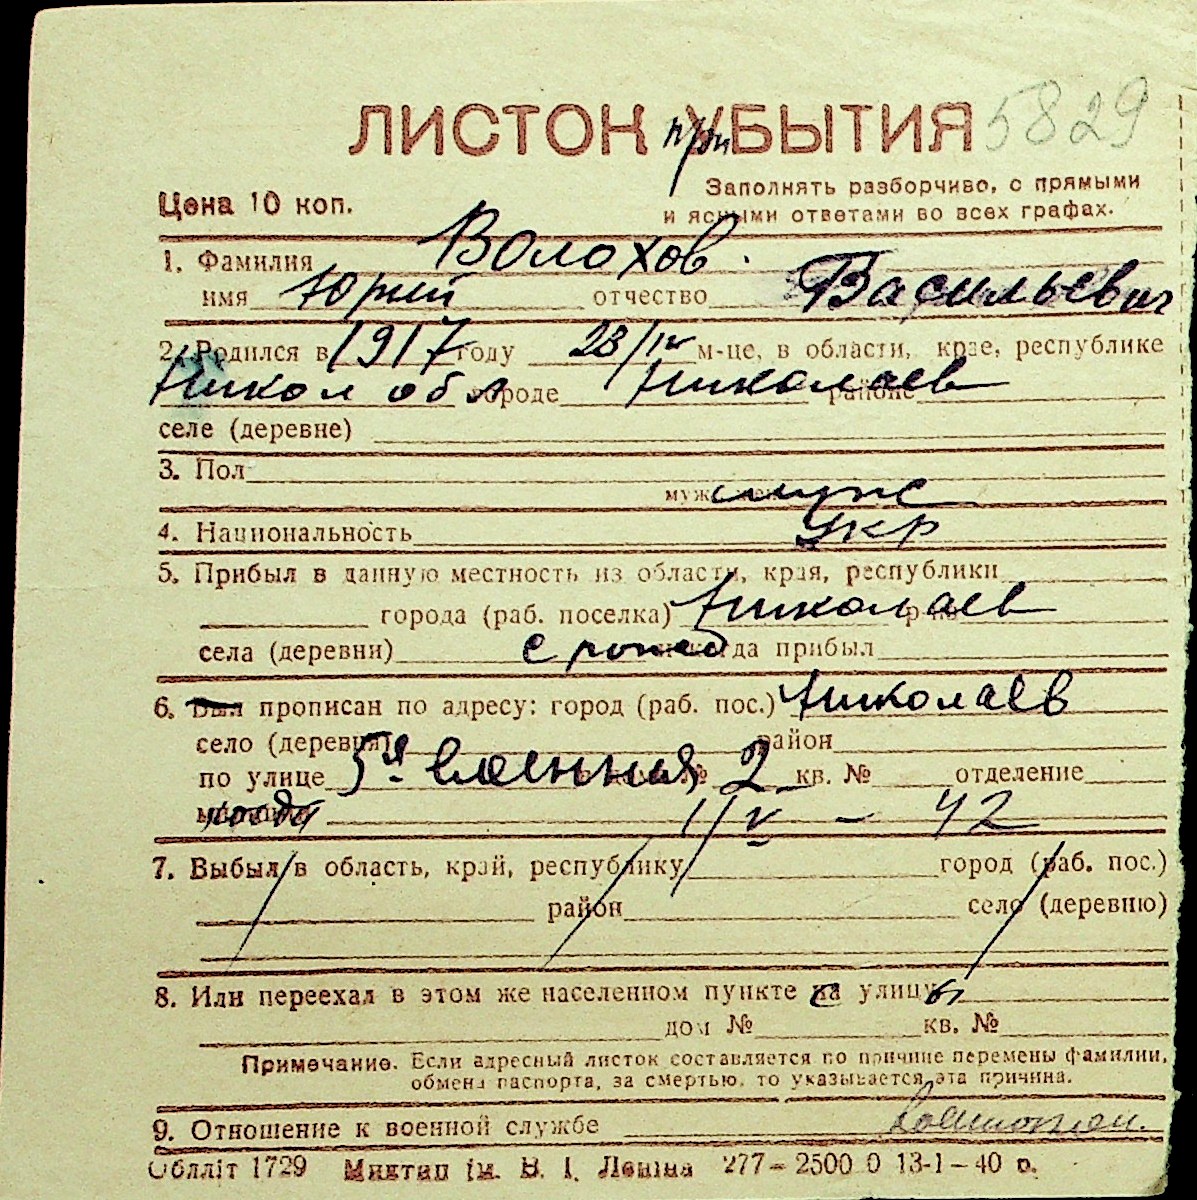 ЛИСТОК УБЫТИЯ при 5829
Цена 10 коп.
Заполнять разборчиво, с прямыми
и ясными ответами во всех графах.
1. Фамилия Волохов.
имя Юрий отчество Васильевич
2. Родился в 1917 году 28/IV м-це, в области, крае, республике
Никол обл городе Николаев районе
селе (деревне)
3. Пол
муж муж
4. Национальность Укр
5. Прибыл в данную местность из области, края, республики
города (раб. поселка) Николаев р-на
села (деревни) с рожд когда прибыл
6. Был прописан по адресу: город (раб. пос.) Николаев
село (деревня) район
по улице 5я Военная № 2 кв. № отделение
1/V - 42
7. Выбыл в область, край, республику город (раб. пос.)
район село (деревню)
8. Или переехал в этом же населенном пункте с улицы
дом № кв. №
Примечание. Если адресный листок составляется по причине перемены фамилии,
обмена паспорта, за смертью, то указывается эта причина.
9. Отношение к военной службе
Облліт 1729 Миктип ім. В. І. Леніна 277-2500 0 13-1-40 р.